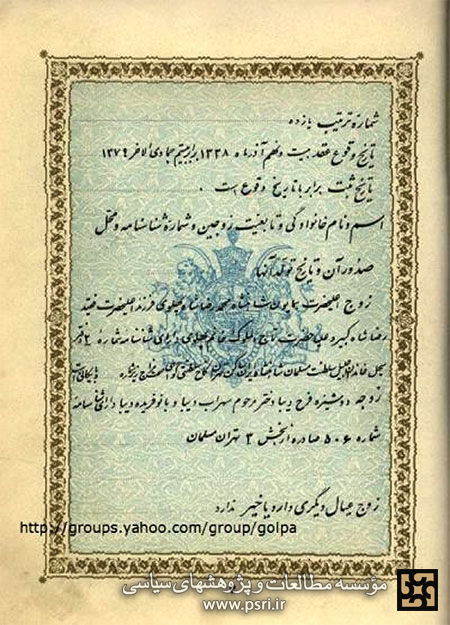 شماره ترتیب یازده
تاریخ وقوع عقد بیست و نهم آذر ماه ۱۳۳۸ برابر بیستم جمادی الآخر ۱۳۷۹
تاریخ ثبت برابر با تاریخ وقوع است .
اسم و نام خانوادگی و تابعیت زوجین و شماره شناسنامه و محل
صدور آن و تاریخ تولد آنها
زوج اعلیحضرت همایون شاهنشاه محمد رضا شاه پهلوی فرزند اعلیحضرت فقید
رضا شاه کبیر و علیاحضرت تاج الملوک خانم پهلوی دارای شناسنامه شماره ۲ دفتر
سجل خاندان جلیل سلطنت مسلمان شاهنشاه ایران ساکن تهران کاخ
زوجه دوشیزه فرح دیبا دختر مرحوم سهراب دیبا و بانو فریده دیبا دارای شناسنامه
شماره ۵۰۶ صادره از بخش ۳ تهران مسلمان
زوج عیال دیگری دارد یا خیر ندارد
http://groups.yahoo.com/group/golpa
مؤسسه مطالعات و پژوهشهای سیاسی
www.psri.ir